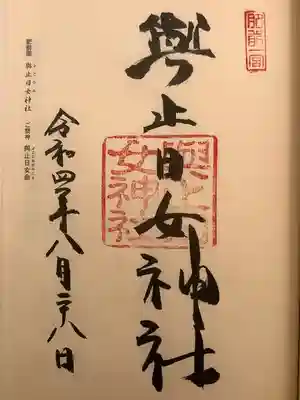 肥前一宮
與止日女神社
與止日女神社
令和四年八月二十八日
肥前國 與止日女神社 ご祭神 與止日女命